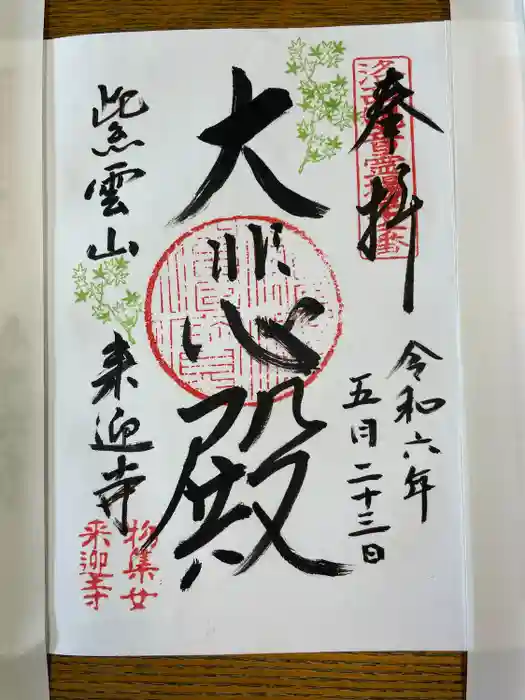 奉拝
令和六年
五月二十三日
大悲殿
紫雲山
来迎寺
物集女
来迎寺